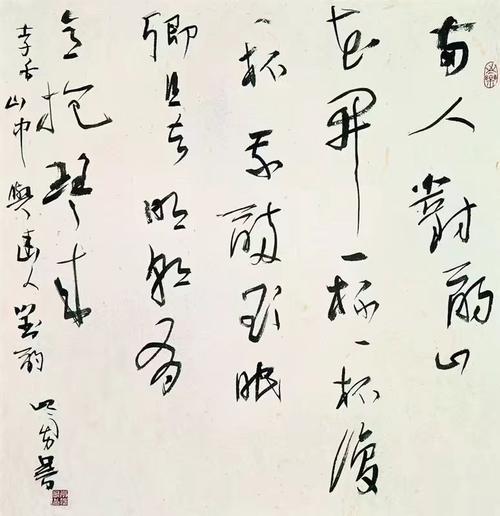 兩人對酌山
花開一杯一杯復
一杯我醉欲眠
卿且去明朝有
意抱琴來
李白山中與幽人對酌